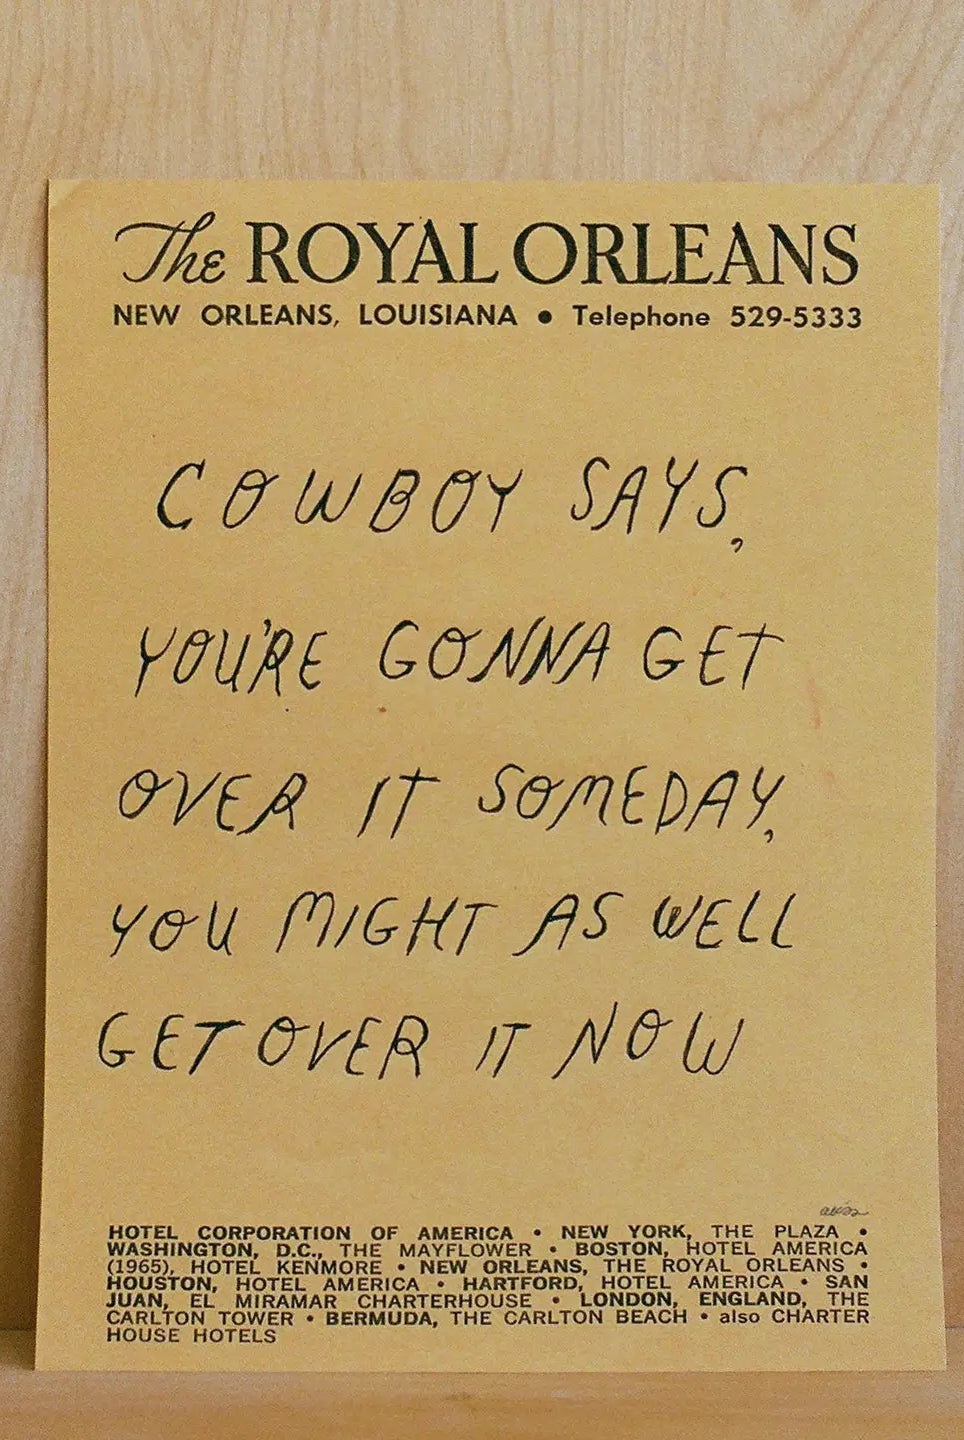 The ROYAL ORLEANS
NEW ORLEANS, LOUISIANA • Telephone 529-5333
COWBOY SAYS,
YOU'RE GONNA GET
OVER IT SOMEDAY,
YOU MIGHT AS WELL
GET OVER IT NOW
HOTEL CORPORATION OF AMERICA • NEW YORK, THE PLAZA •
WASHINGTON, D.C., THE MAYFLOWER • BOSTON, HOTEL AMERICA
(1965), HOTEL KENMORE • NEW ORLEANS, THE ROYAL ORLEANS •
HOUSTON, HOTEL AMERICA • HARTFORD, HOTEL AMERICA • SAN
JUAN, EL MIRAMAR CHARTERHOUSE • LONDON, ENGLAND, THE
CARLTON TOWER • BERMUDA, THE CARLTON BEACH • also CHARTER
HOUSE HOTELS